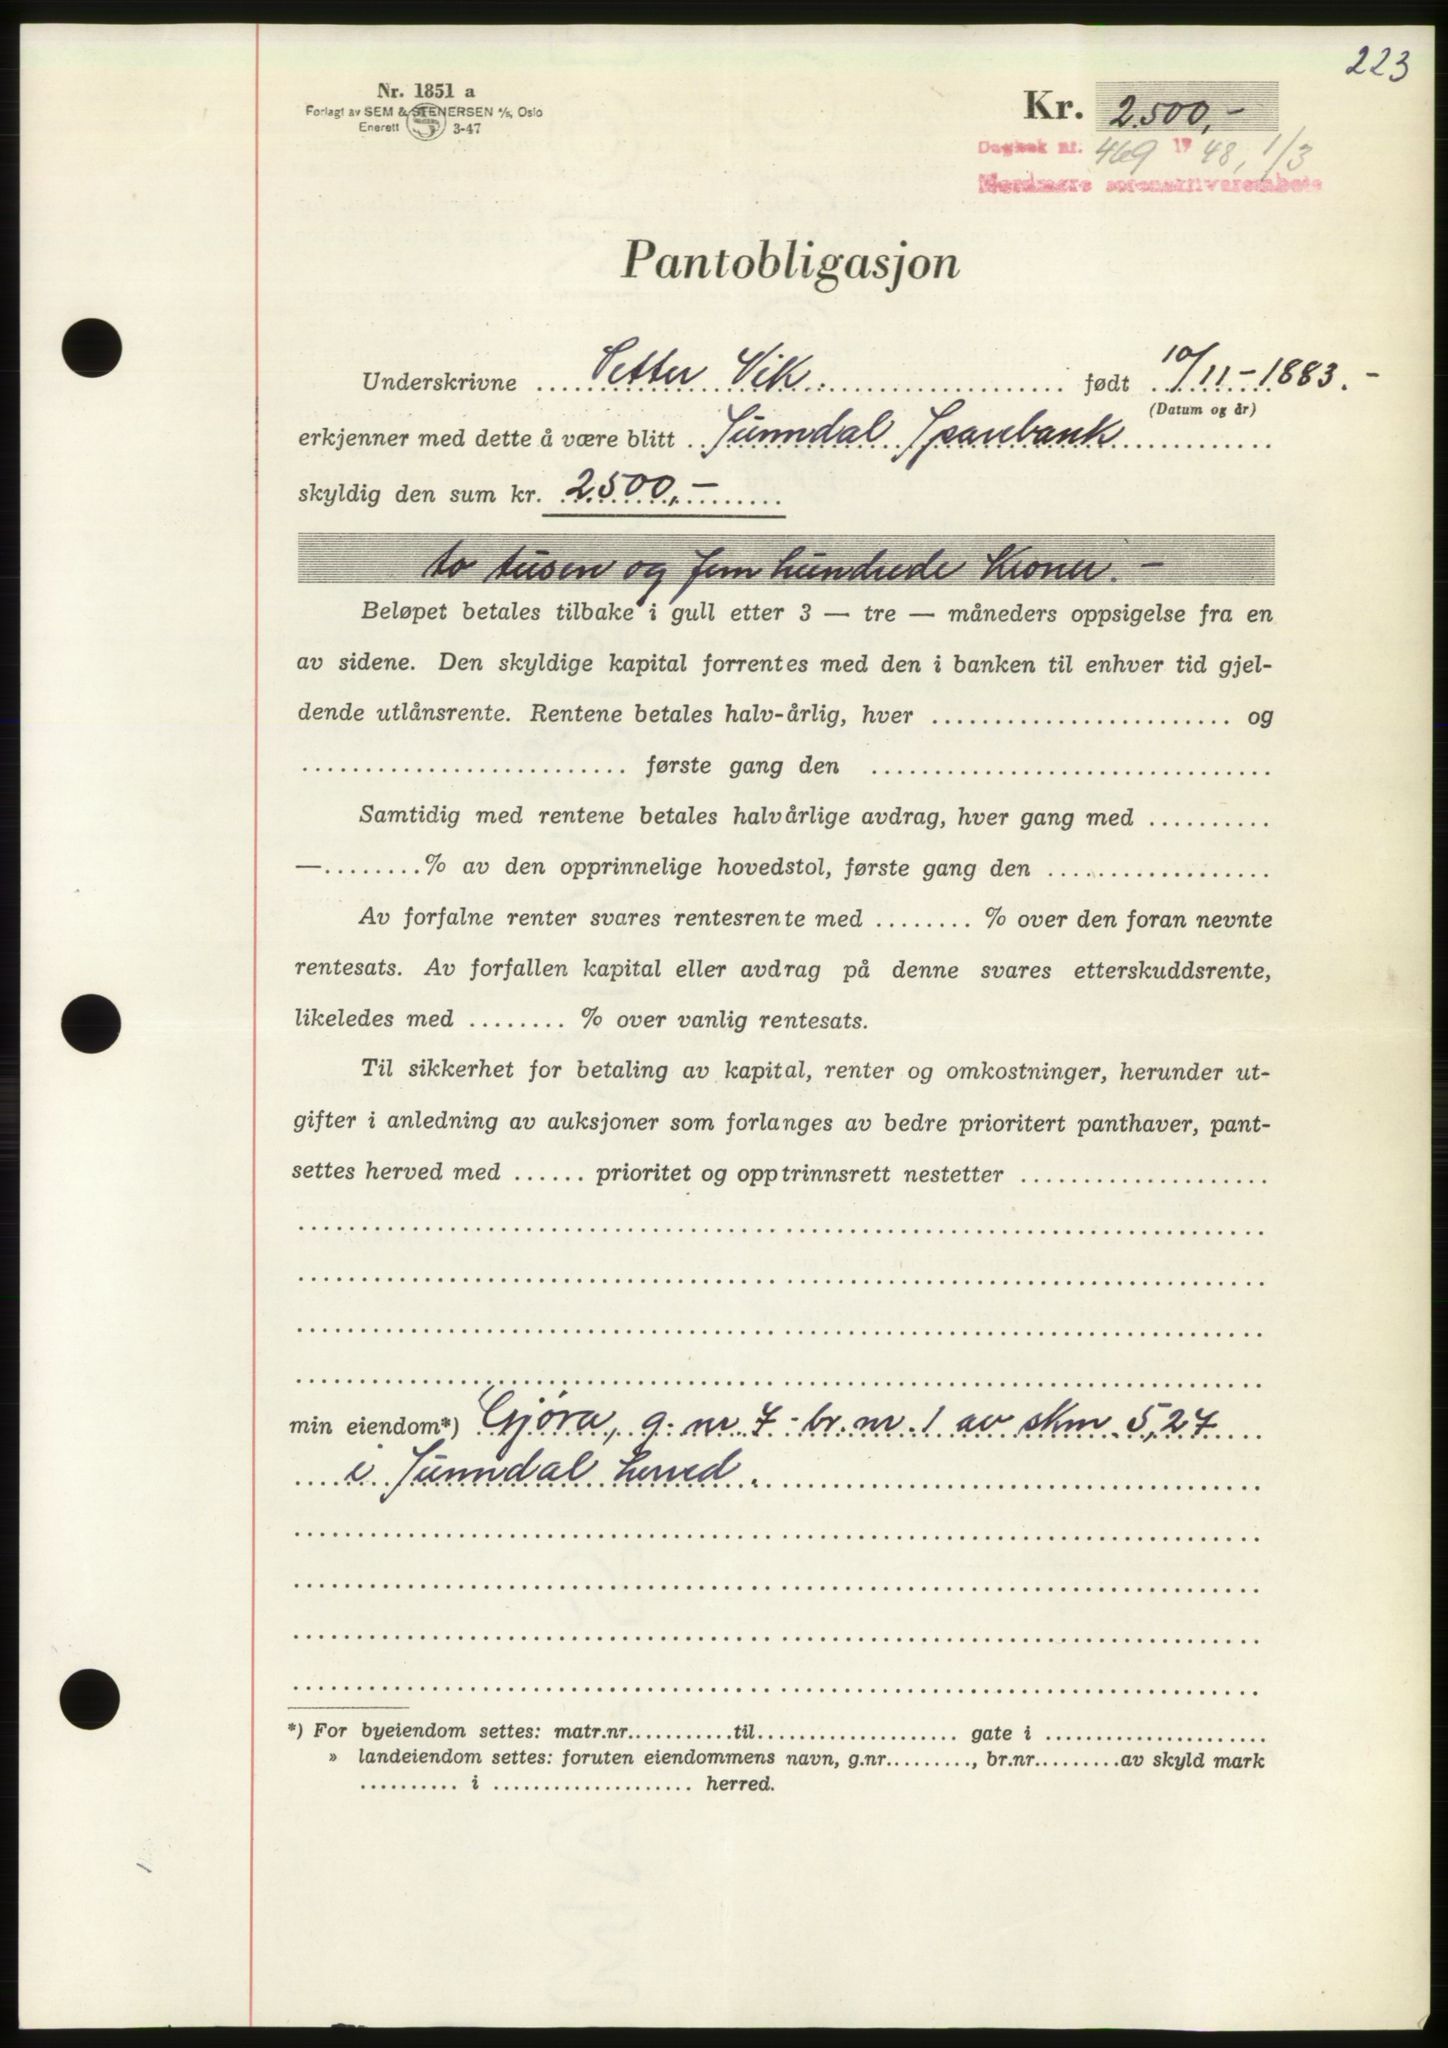 223
Nr. 1851 a
Forlagt av SEM & STENERSEN A/S, Oslo
Enerett 3-47
Kr. 2.500,-
Dagbok nr. 469 19 48, 1/3
Nordmøre sorenskriverembete
Pantobligasjon
Underskrivne Petter Vik. født 10/11-1883.-
(Datum og år)
erkjenner med dette å være blitt Sunndal Sparebank
skyldig den sum kr. 2.500,-
to tusen og fem hundrede kroner.-
Beløpet betales tilbake i gull etter 3 — tre — måneders oppsigelse fra en
av sidene. Den skyldige kapital forrentes med den i banken til enhver tid gjel-
dende utlånsrente. Rentene betales halv-årlig, hver ........................ og
.......................... første gang den ................................
Samtidig med rentene betales halvårlige avdrag, hver gang med ..........
—........% av den opprinnelige hovedstol, første gang den ..................
Av forfalne renter svares rentesrente med ........ % over den foran nevnte
rentesats. Av forfallen kapital eller avdrag på denne svares etterskuddsrente,
likeledes med ........ % over vanlig rentesats.
Til sikkerhet for betaling av kapital, renter og omkostninger, herunder ut-
gifter i anledning av auksjoner som forlanges av bedre prioritert panthaver, pant-
settes herved med ...... prioritet og opptrinnsrett nestetter ....................
min eiendom*) Gjøra, g. nr. 7 - br. nr. 1 av skm. 5,27
i Sunndal herred.
*) For byeiendom settes: matr.nr...........til.................... gate i ......................
» landeiendom settes: foruten eiendommens navn, g.nr........., br.nr.........av skyld mark
.......... i .................... herred.